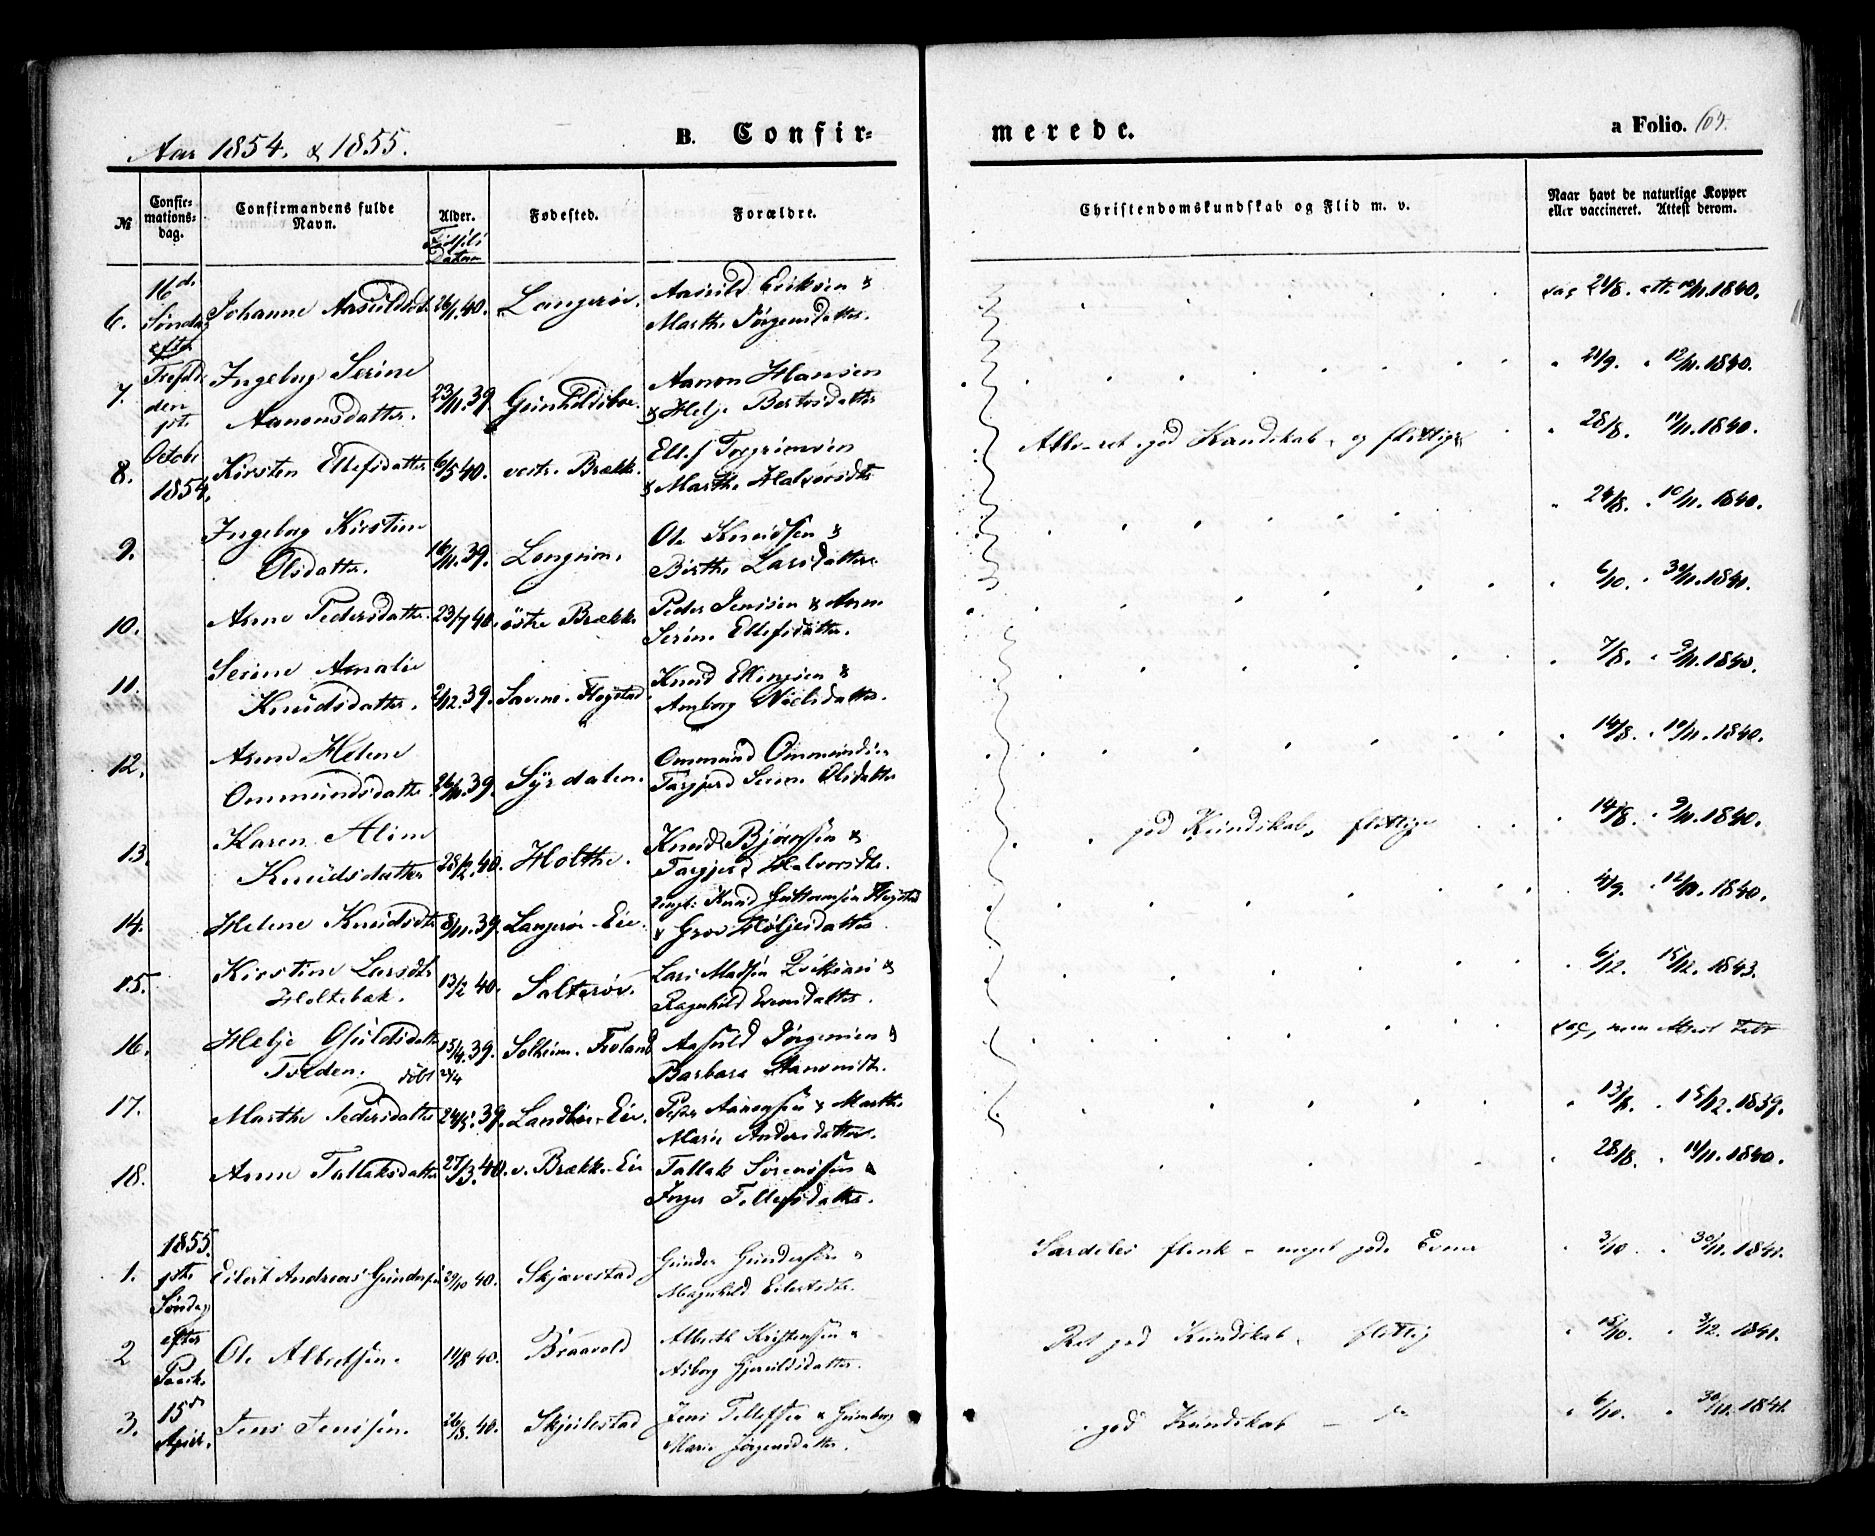 Aar 1854. & 1855.
B. Confir-
merede.
a Folio.
№
Confir-
mations-
dag.
Confirmandens fulde
Navn.
Alder.
Fødsels
Datum
Fødested.
Forældre.
Christendomskundskab og Flid m. v.
Naar havt de naturlige Kopper
eller vaccineret. Attest derom.
16de
Søndag
efter
Trefol
den
1ste
Octobr
1854.
6. Johanne Aasuldsdt. 26/1.40. Langerøe. Aasuld Eriksen &
Marthe Jørgensdatter. vac 21/8. att. 10/11.1840.
7. Ingeborg Serine
Aanonsdatter. 23/11.39. Gunhildsboe. Aanon Hansen
& Helje Bertosdatter 21/9. 12/11.1840.
8. Kirsten Ellefsdatter 6/5 40. vestre Brække. Ellef Torgrimsen
& Marthe Halvorsdtr ret god Kundskab, og flittige 28/8. 11/11.1840.
9. Ingeborg Kirstine
Olsdatter. 16/11.39. Langerøe. Ole Knudsen &
Birthe Larsdatter. 24/8. 10/11.1840.
10. Anne Pedersdatter 23/7 40. østre Brække Peder Jenssen & Anne
Serine Ellefsdatter. 6/10. 30/11.1841.
11. Serine Amalie
Knudsdatter. 2/12.39. Flogstad Knud Ellingsen &
Anborg Nielsdatter. 7/8. 9/11.1840.
12. Anne Helene
Ommundsdatter 26/11.39. Syrdalen. Ommund Ommundsen
Targjerd Serine Olsdatter 14/8. 10/11.1840.
13. Karen Aline
Knudsdatter 28/2.40. Holthe. Knud Bjørnsen &
Targjerd Halvorsdtr. god Kundskab, flittige 14/8. 9/11.1840.
14. Helene Knudsdtr 8/11.39. Langerøe-Eie. Knud Guttormsen Flogstad
& Gro Høljesdatter 4/9. 12/11.1840.
15. Kirstine Larsdtr
Holtebæk. 13/2 40. Salterøe. Lars Madsen &
Ragnhild Evensdatter. 6/12. 15/12.1843.
16. Helje Osuldsdatter
Tveden. døbt 15/4.39.
21/4 Solheim. Froland Aasuld Jørgensen &
Barbara Aanonsdtr. vac, men
17. Marthe Pedersdatter 24/5.39. Landbøe-Eie. Peder Aanonsen & Marthe
Marie Andersdatter. 13/8. 15/12.1839.
18. Anne Tallaksdatter 27/3.40. v. Brække-Eie Tallak Sørensen &
Inger Tellefsdatter. 28/8. 14/11.1840.
1855.
1ste
Søndag
efter
Paaske
15de
April.
1. Eilert Andreas Gundersen 29/10 40. Skjævestad Gunder Gundersen &
Magnhild Eilertsdtr. Særdeles flink - meget gode Evner 3/10 30/11.1841.
2 Ole Albretsen. 11/8 40. Braavold Albreth Kristensen &
Asborg Gjeruldsdatter. Ret god Kundskab, flittig 15/10. 3/12.1841.
3. Jens Jenssen. 26/8.40. Skjulestad Jens Tellefsen & Gunborg
Marie Jørgensdatter. god Kundskab - do 6/10. 30/11.1841.